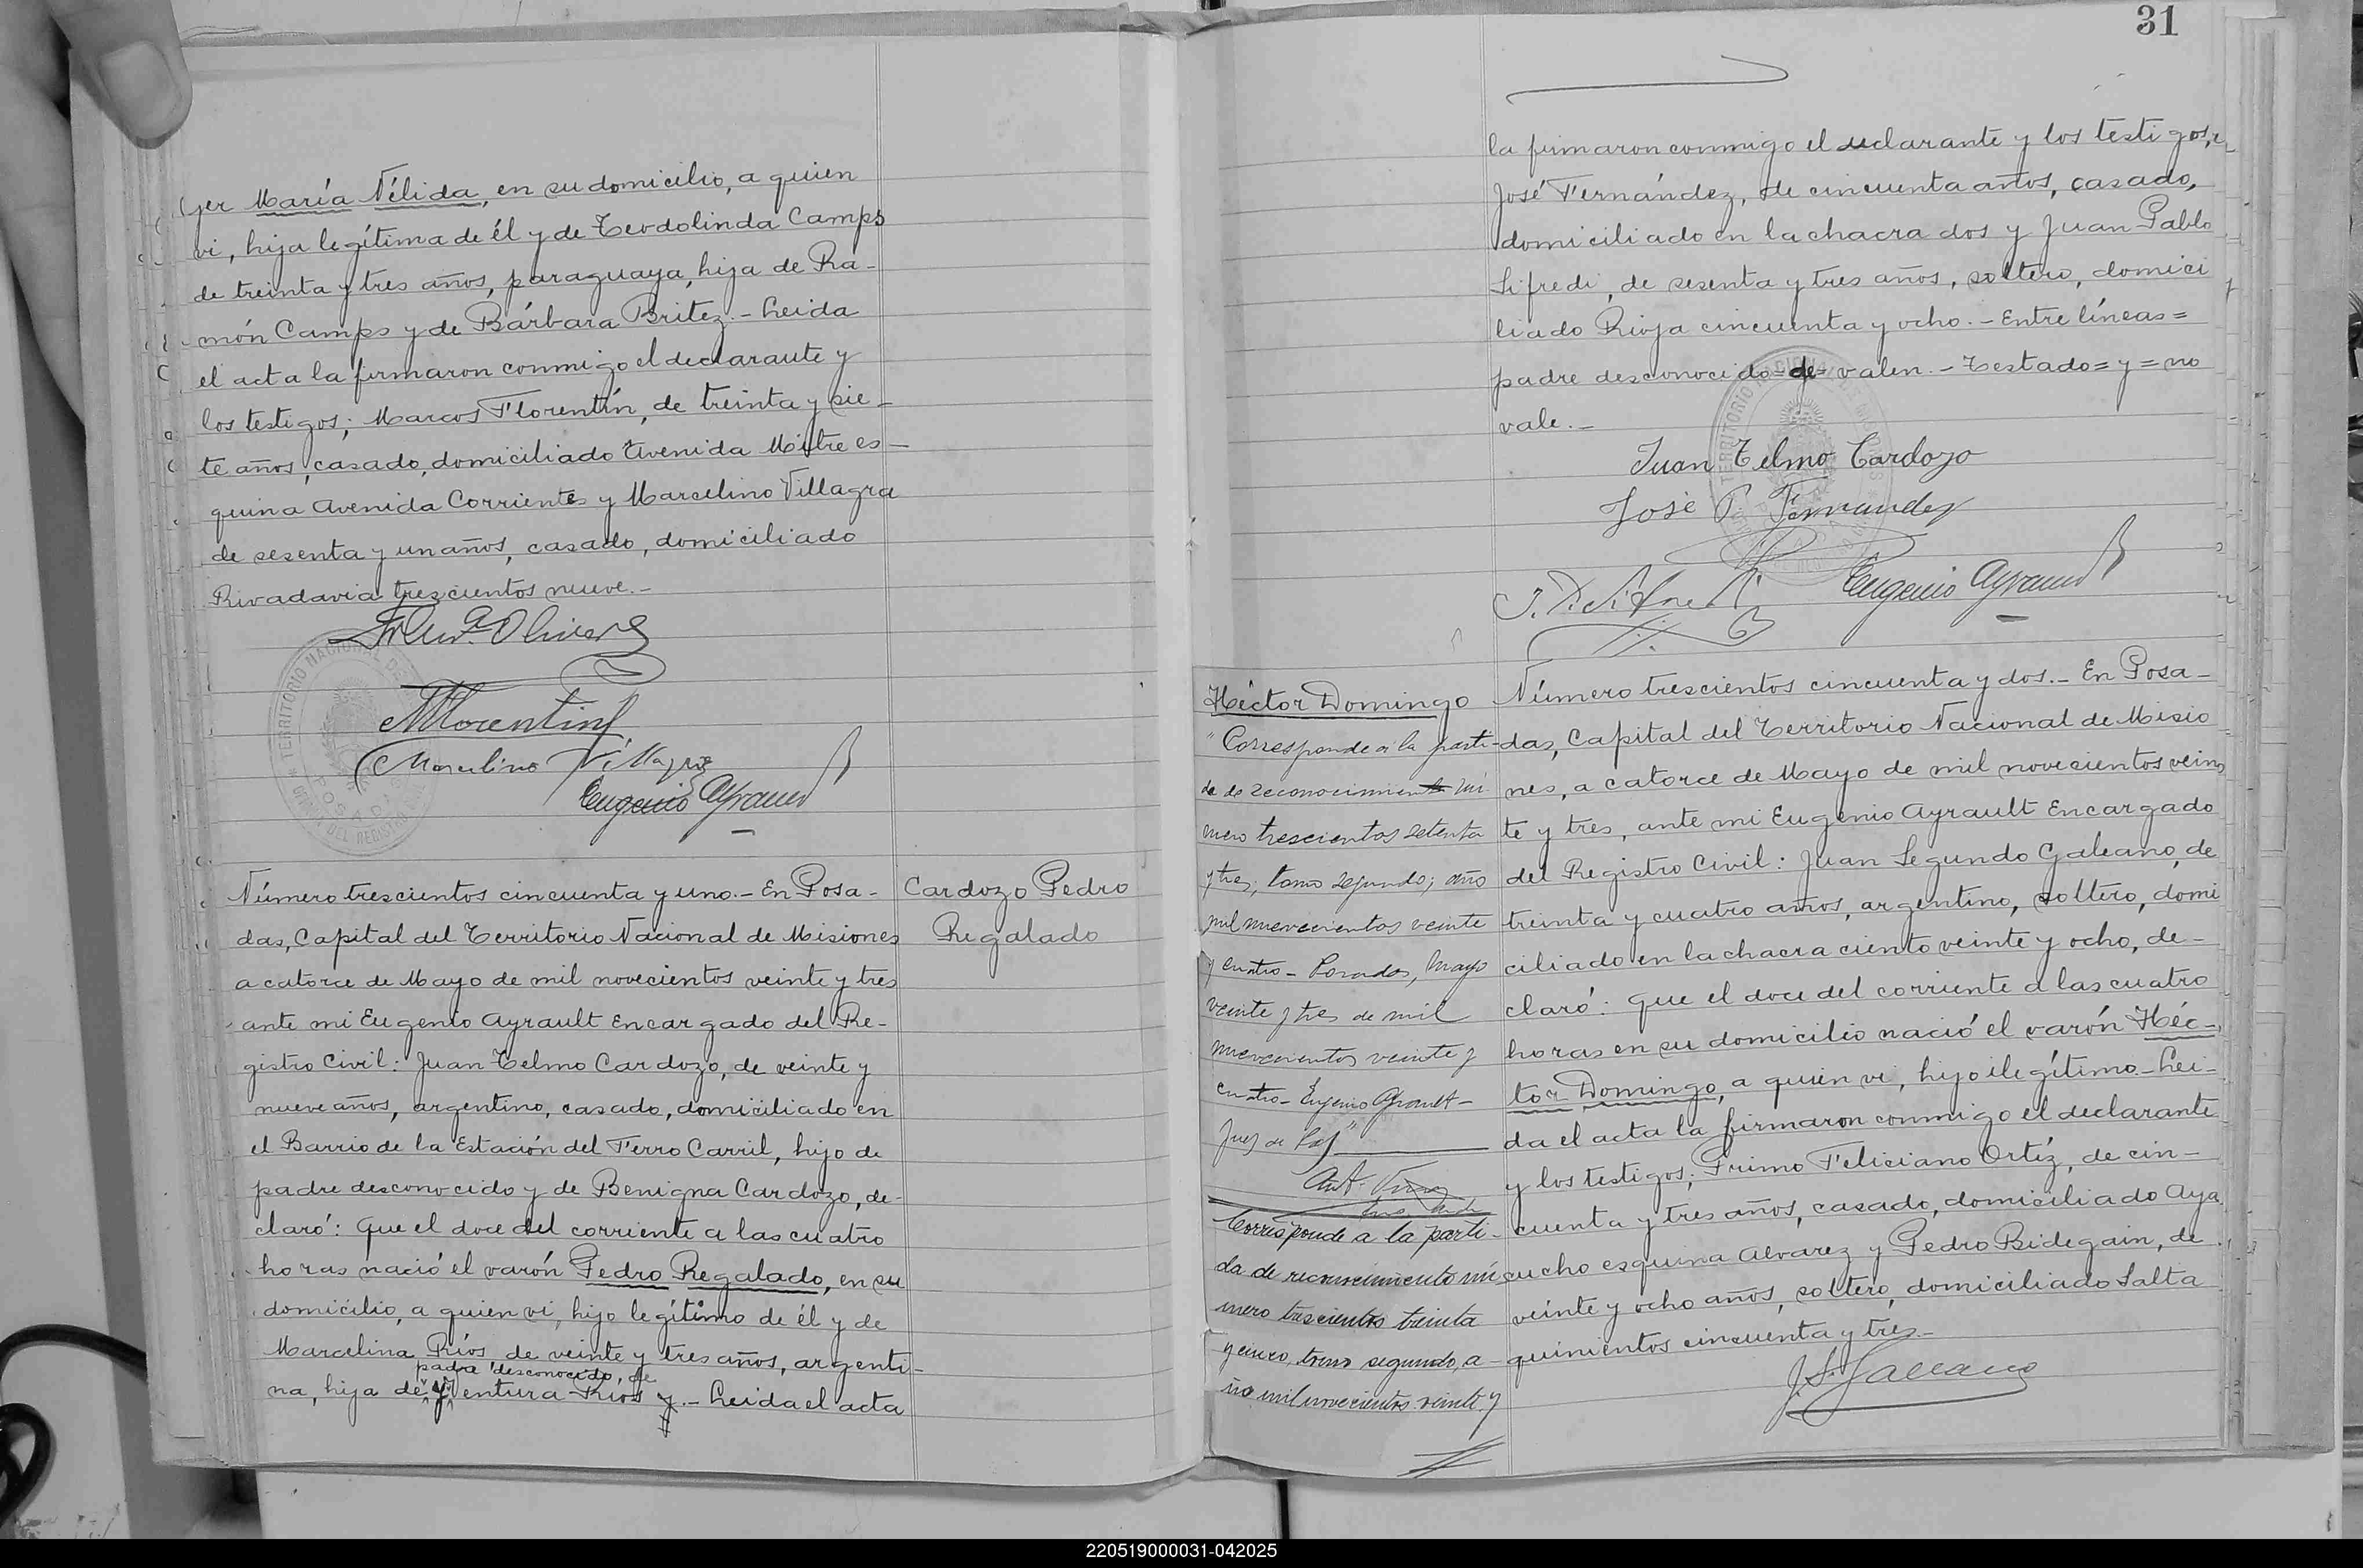 jer María Nélida, en su domicilio, a quien
vi, hija legítima de él y de Teodolinda Camps
de treinta y tres años, paraguaya, hija de Ra-
món Camps y de Bárbara Britez.- Leida
el acta la firmaron conmigo el declarante y
los testigos; Marcos Florentín, de treinta y sie-
te años, casado, domiciliado Avenida Mitre es-
quina Avenida Corrientes y Marcelino Villagra
de sesenta y un años, casado, domiciliado
Rivadavia trescientos nueve.-
Olivera
MFlorentin
Marcelino Villagra
Eugenio Ayrault
Número trescientos cincuenta y uno.- En Posa-
das, Capital del Territorio Nacional de Misiones
a catorce de Mayo de mil novecientos veinte y tres
ante mi Eugenio Ayrault Encargado del Re-
gistro Civil: Juan Telmo Cardozo, de veinte y
nueve años, argentino, casado, domiciliado en
el Barrio de la Estación del Ferro Carril, hijo de
padre desconocido y de Benigna Cardozo, de-
claró: Que el doce del corriente a las cuatro
horas nació el varón Pedro Regalado, en su
domicilio, a quien vi, hijo legítimo de él y de
Marcelina Ríos, de veinte y tres años, argenti-
padre desconocido, de
na, hija de Ventura Ríos y.- Leida el acta
Cardozo Pedro
Regalado
31
la firmaron conmigo el declarante y los testigos;
José Fernández, de cincuenta años, casado,
domiciliado en la chacra dos y Juan Pablo
Sifredi, de sesenta y tres años, soltero, domici
liado Rioja cincuenta y ocho.- Entre líneas=
padre desconocido-de-valen.- Testado=y=no
vale.-
Juan Telmo Cardozo
José P. Fernandez
Eugenio Ayrault
Héctor Domingo
"Corresponde a la parti-
da de reconocimiento nú
mero trescientos setenta
y tres, tomo segundo; año
mil nuevecientos veinte
y cuatro- Posadas, Mayo
veinte y tres de mil
nuevecientos veinte y
cuatro- Eugenio Ayrault-
Juez de Paz"
Corresponde a la parti-
da de reconocimiento nú
mero trescientos treinta
y cinco, tomo segundo, a-
ño mil novecientos veinte y
Número trescientos cincuenta y dos.- En Posa-
das, Capital del Territorio Nacional de Misio
nes, a catorce de Mayo de mil novecientos vein
te y tres, ante mi Eugenio Ayrault Encargado
del Registro Civil: Juan Segundo Galeano, de
treinta y cuatro años, argentino, soltero, domi
ciliado en la chacra ciento veinte y ocho, de-
claró: Que el doce del corriente a las cuatro
horas en su domicilio nació el varón Héc-
tor Domingo, a quien vi, hijo ilegítimo- Lei-
da el acta la firmaron conmigo el declarante
y los testigos; Primo Feliciano Ortíz, de cin-
cuenta y tres años, casado, domiciliado Aya
cucho esquina Alvarez y Pedro Bidegain, de
veinte y ocho años, soltero, domiciliado Salta
quinientos cincuenta y tres.-
J. S. Galeano
220519000031-042025